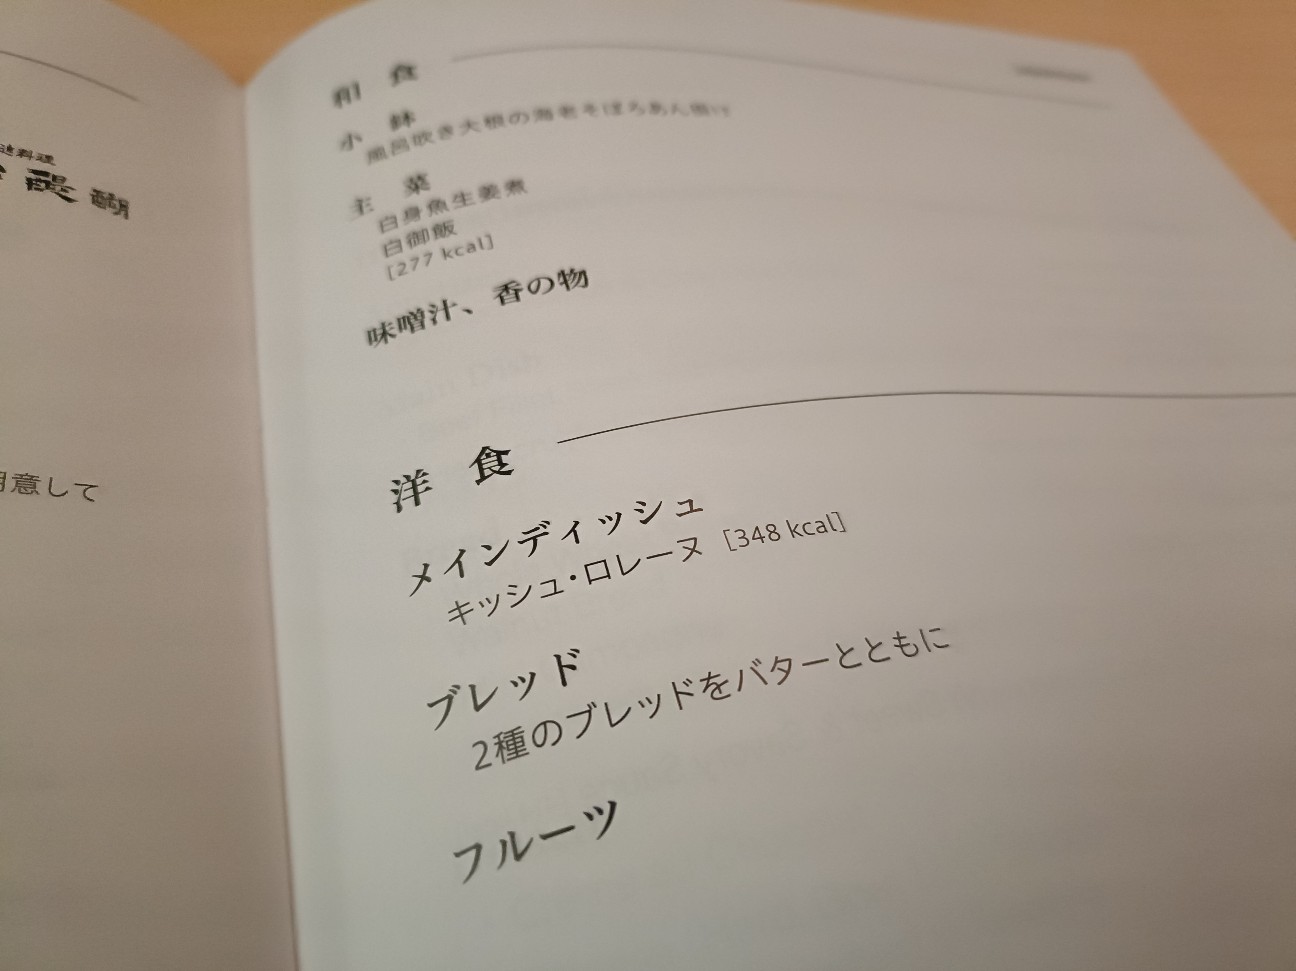 進料理
醍醐
用意して
和 食
小 鉢
風呂吹き大根の海老そぼろあん掛け
主 菜
白身魚生姜煮
白御飯
[277 kcal]
味噌汁、香の物
洋 食
メインディッシュ
キッシュ・ロレーヌ [348 kcal]
ブレッド
2種のブレッドをバターとともに
フルーツ